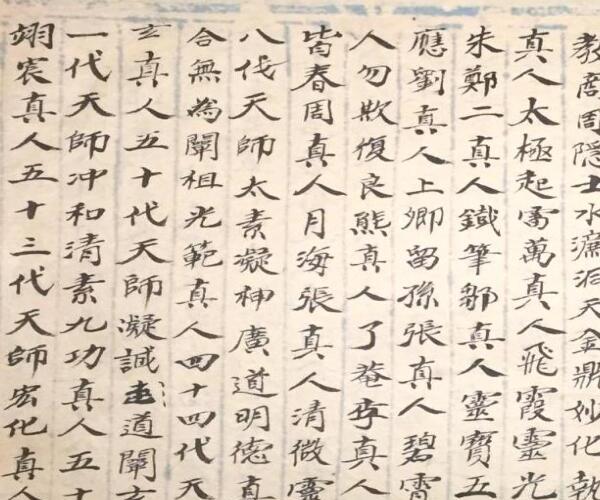 教商周隱士水濂洞天金鼎妙化執
真人太極起雷萬真人飛霞靈光
朱鄭二真人鐵筆鄒真人靈寶五
應劉真人上卿留孫張真人碧霄
人勿欺復良熊真人了菴李真人
皆春周真人月海張真人清微靈
八代天師太素凝神廣道明德真
合無為闡祖光範真人四十四代天
玄真人五十代天師凝誠道闡玄
一代天師冲和清素九功真人五十
翊宸真人五十三代天師宏化真人